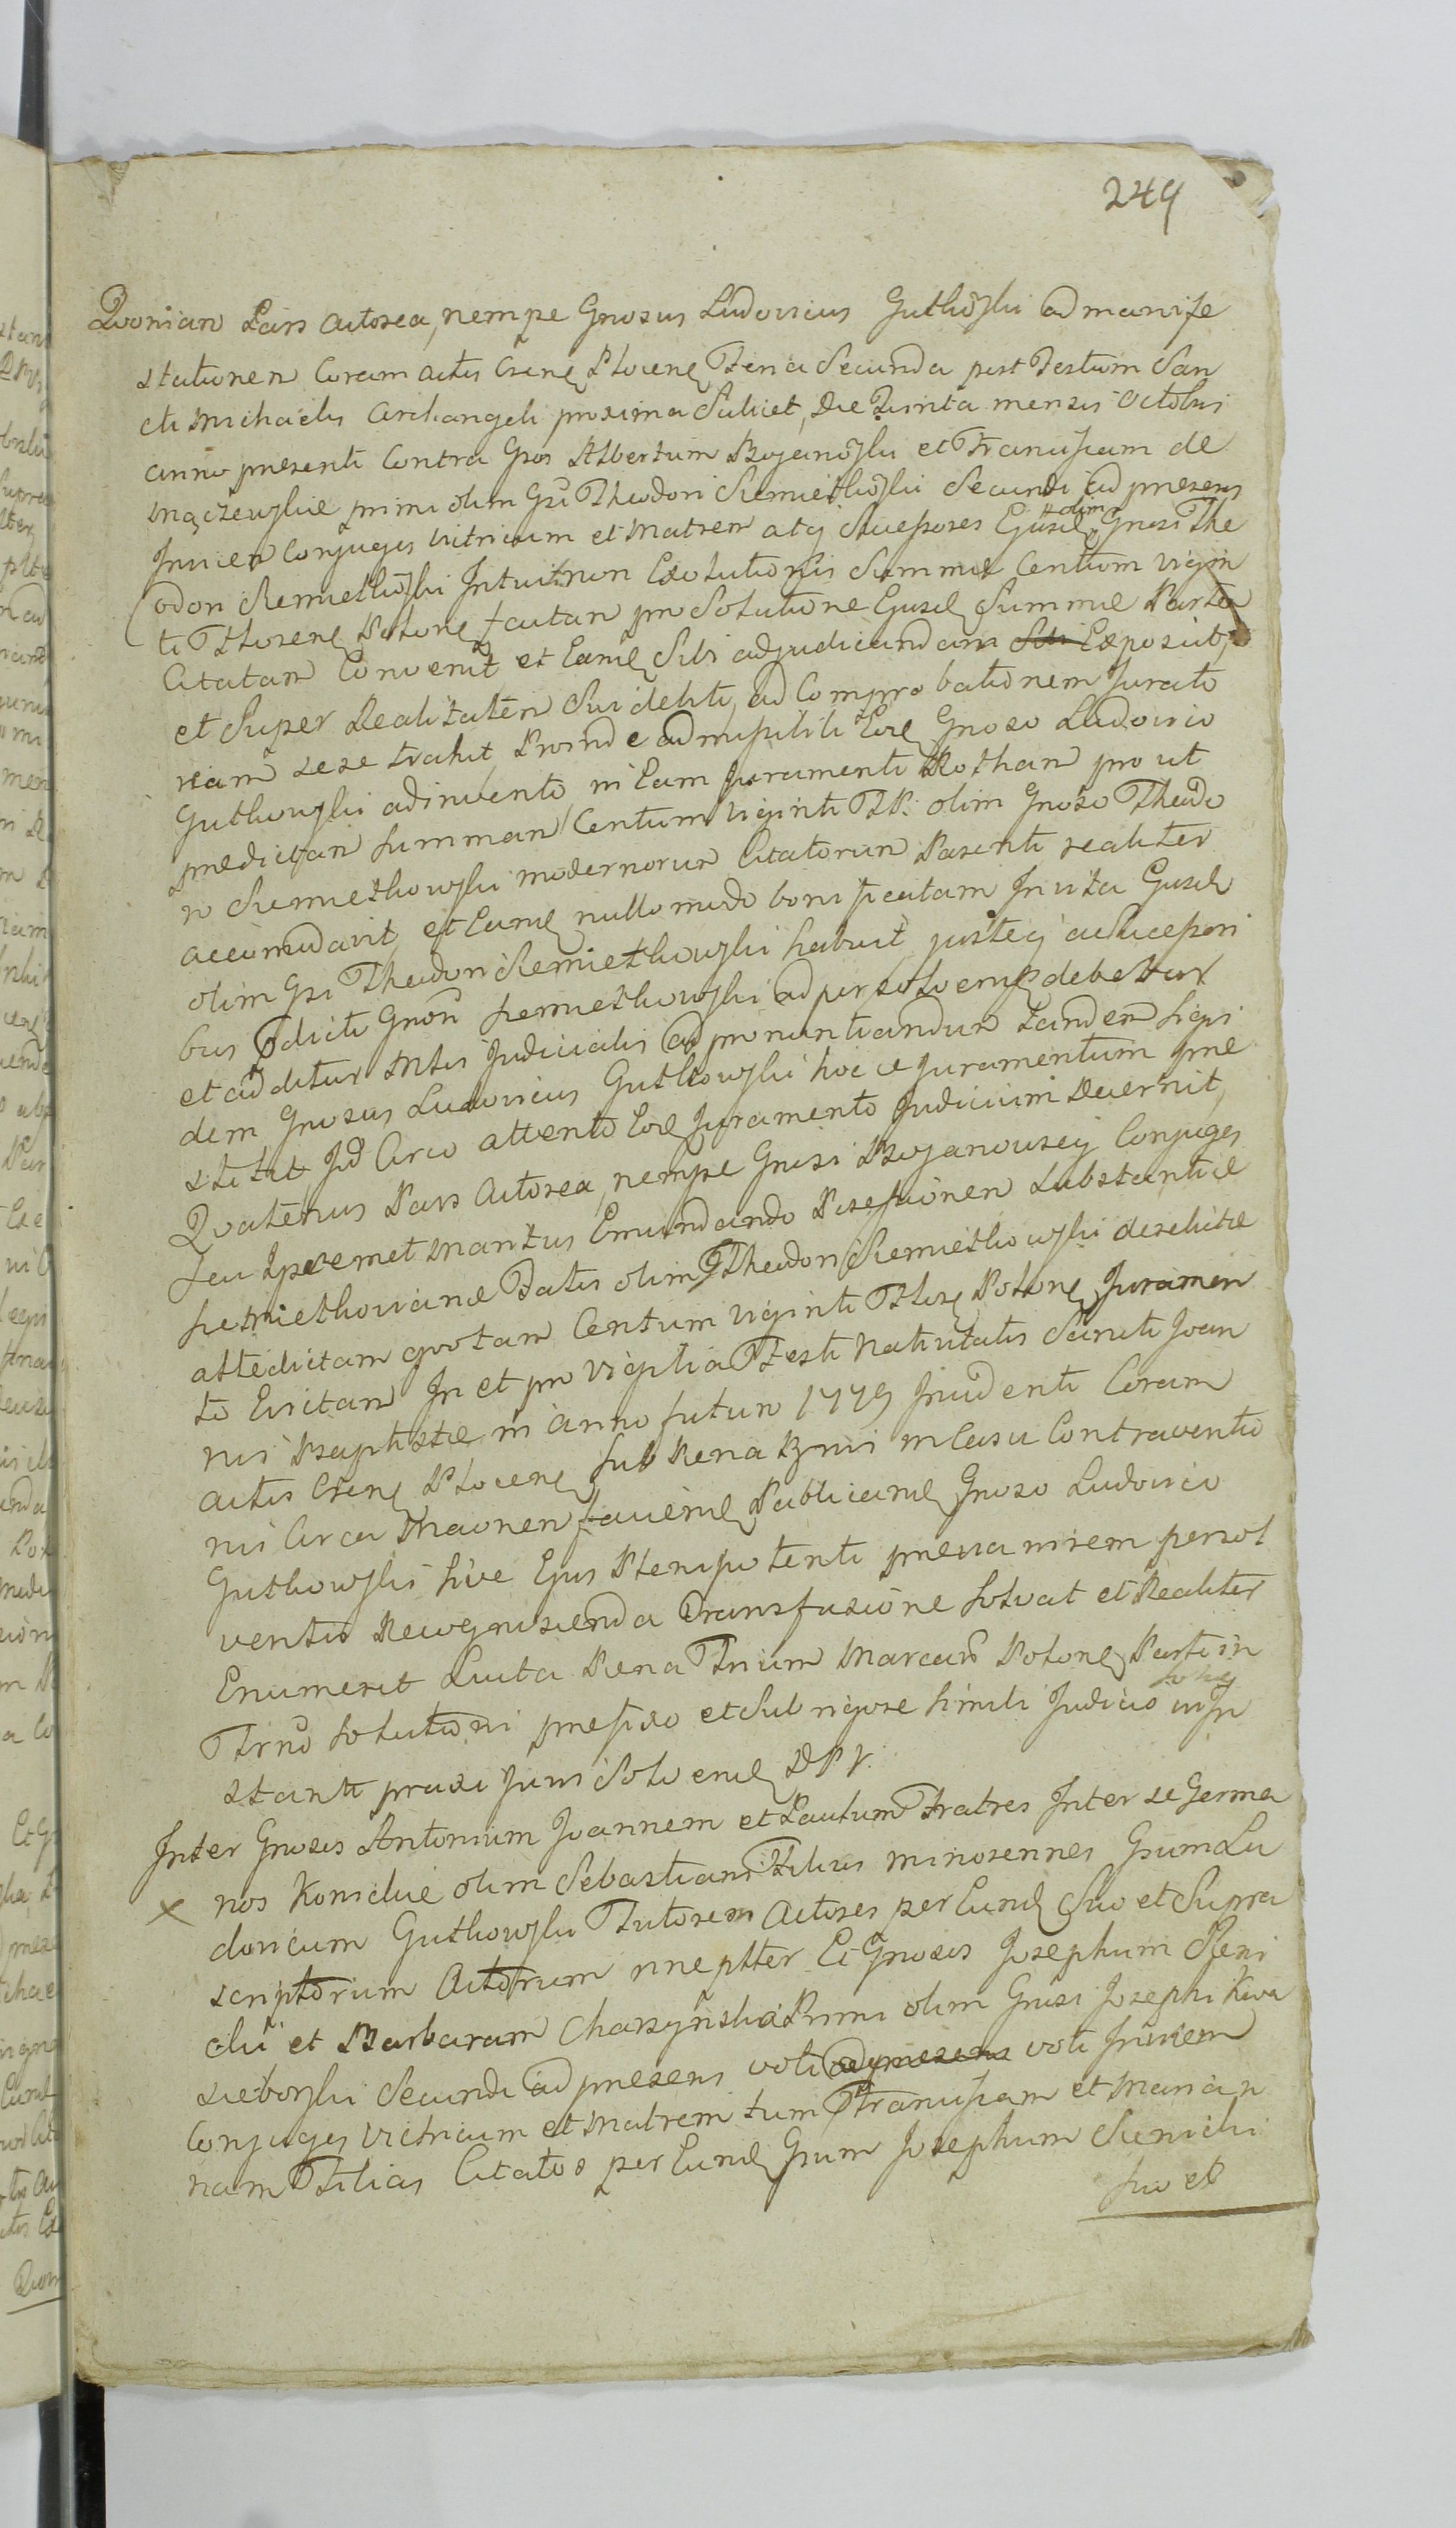 249
Quoniam Pars Actorea, nempe Gnosus Ludovicus Gutkowski ad manife
stationem Coram actis Csens Plocens Feria Secunda post Festum San
cti Michaelis Archangeli proxima Scilicet, Die Quinta mensis Octobris
anno presenti Contra Gsos Albertum Boyanowski et Franciscam de
Mączewskie primi olim Gsi Theodori Siemiethowski Secundi ad presens
Invicem Conjuges Vitricum et Matrem atq Successores Ejusd olim Gnosi The
odori Siemiethowski Intuitu non Exolutionis Summæ Centum vigin
ti Florens Polons factam pro Solutione Ejusd Summæ Partem
Citatam Convenit et Eand Sibi adjudicandam Exposcit
et Super Realitatem Sui debiti ad Comprobationem Jurato
riam sese trahit Proinde admissibili Eod Gnoso Ludovico
Gutkowski adinvento, in Eam Juramenti Rotham pro ut
predictam Summam Centum Viginti FP: olim Gnoso Theodo
ro Siemiethowski modernorum Citatorum Parenti realiter
accomodavit, et Eand nullo modo bonificatam In vita Ejusd
olim Gsi Theodori Siemiethowski habuit, justeq a Successori
bus pdicti Gnosi Siemiethowski ad persolvend debetur
et additur Mtis Judicialis ad pronuntiandum Tandem Siqui
dem Gnosus Ludovicus Gutkowski hocce juramentum præ
stitit, Id Circo attento Eod Juramento Judicium Decernit,
Quatenus Pars Actorea, nempe Gnosi Boyanowscy Conjuges
Seu Ipsemet Maritus Emundando Possessionem Substantiæ
Siemiethowianæ Fatis olim Theodori Siemiethowski derelictæ
attedictam quotam Centum Viginti Flors Polons Juramen
to Evictam In et pro Vigilia Festi Nativitatis Sancti Joan
nis Baptistæ in anno futuro 1779 Incidenti Coram
actis Csens Plocens sub Pena Bnnis in Casu Contraventio
nis Circa Maonem faciend Publicand Gnoso Ludovico
Gutkowski sive Ejus Plenipotenti prævia vicem persol
ventis Recognoscenda Transfusione Solvat et Realiter
Enumeret Luita Pena Trium Marcarum Polons Parti in
Trno Solutioni præfixo et Sub rigore simili Judicio in In
stanti praxi Juris Solvend DPV.
Inter Gnosos Antonium Joannem et Paulum Fratres Inter se Germa
nos Konickie olim Sebastiani Filios minorennes Gsum Lu
dovicum Gutkowski Tutorem Actores per Eund Suo et Supra
scriptorum Actorum nneptter Et Gnosos Josephum Sieni
cki et Barbaram Charzyńska Primi olim Gnosi Josephi Kwa
sieborski Secundi ad presens voti Invicem
Conjuges Vitricum et Matrem tum Franciscam et Marian
nam Filias Citatos per Eund Gsum Josephum Sienicki
Suo et